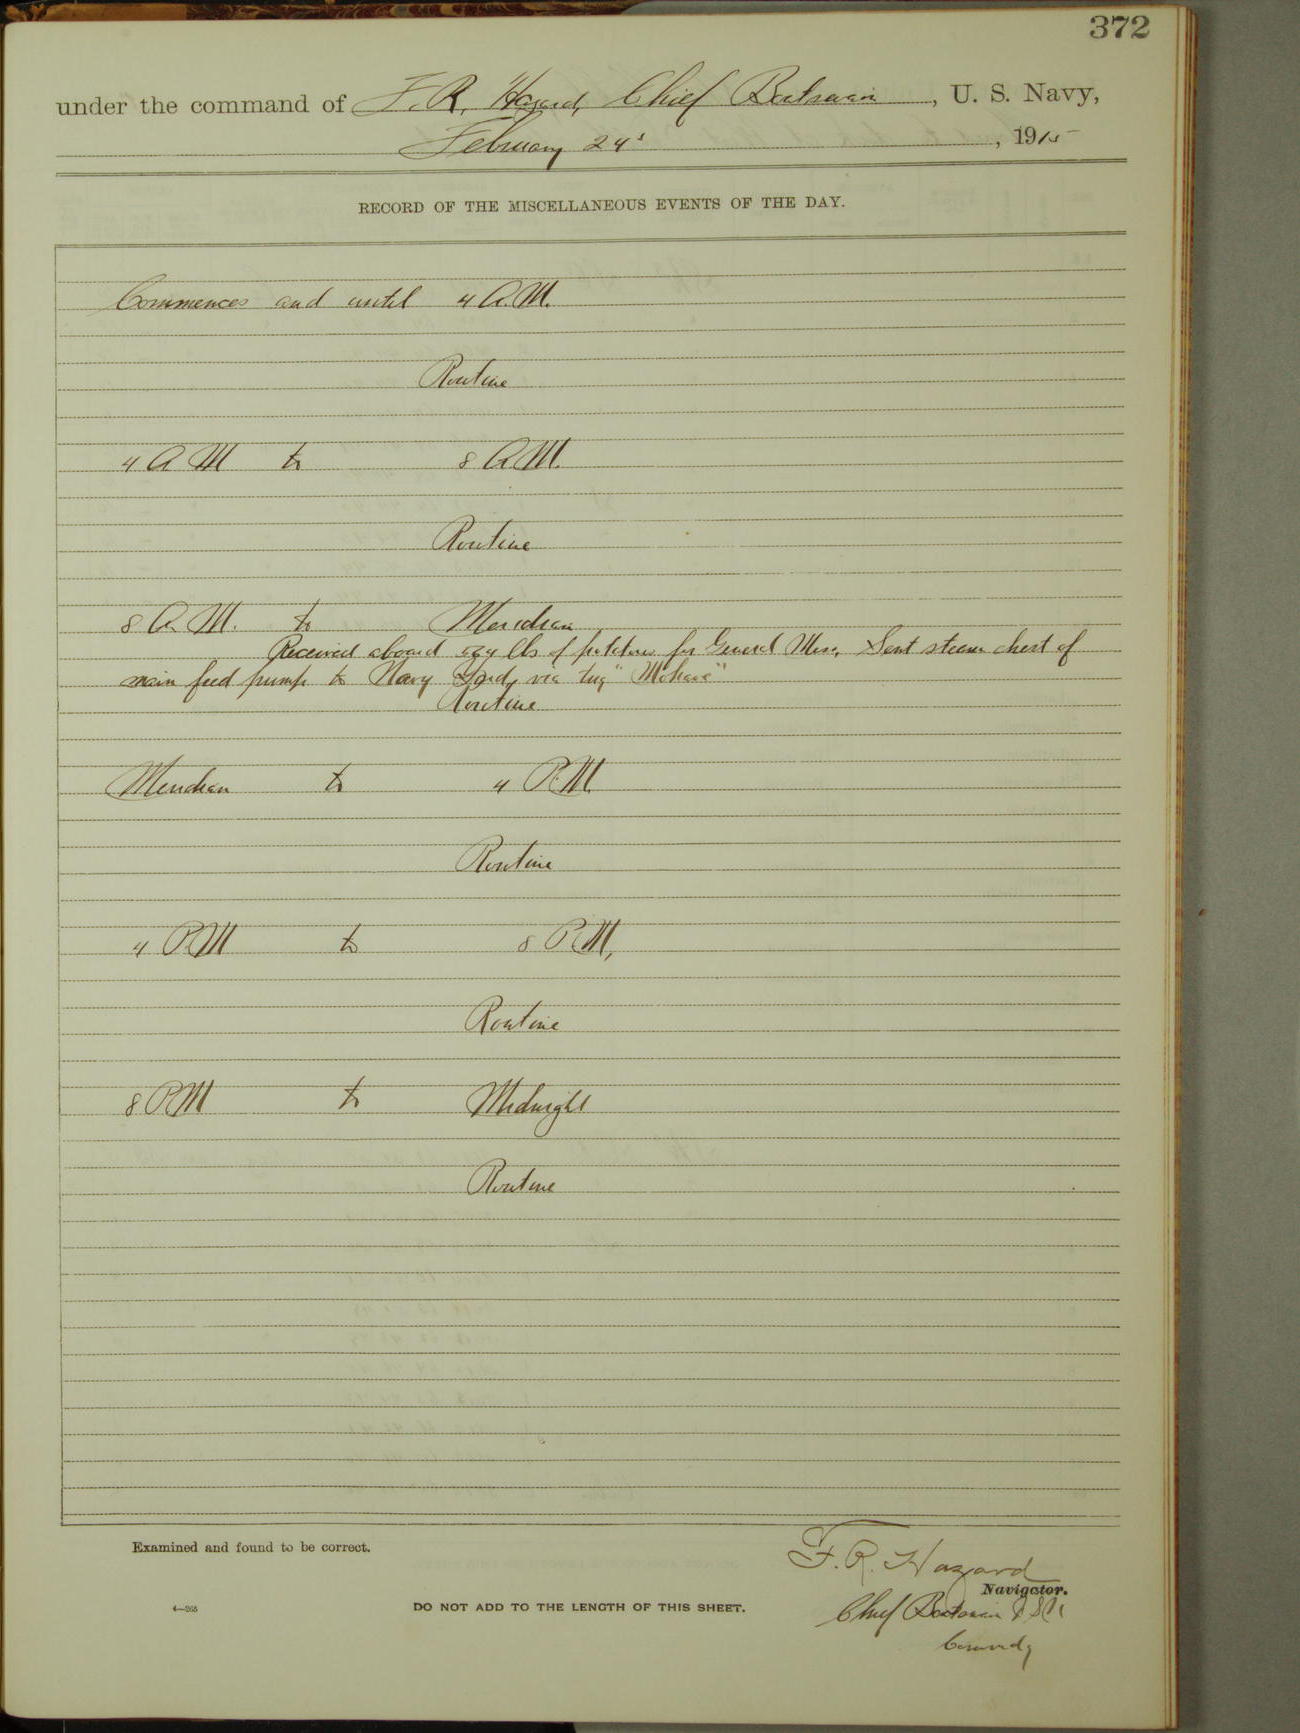 372
under the command of F. R. Hazard, Chief Boatswain, U. S. Navy,
February 24", 1915
RECORD OF THE MISCELLANEOUS EVENTS OF THE DAY.
Commences and until 4 A.M.
Routine
4 A M to 8 A.M.
Routine
8 A. M. to Meridian
Received aboard lbs of potatoes for General Mess, Sent steam chest of
main feed pump to Navy Yard, via tug "Mohave"
Routine
Meridian to 4 P.M.
Routine
4 P.M to 8 P.M,
Routine
8 P.M to Midnight
Routine
Examined and found to be correct.
F. R. Hazard
Navigator.
4—265
DO NOT ADD TO THE LENGTH OF THIS SHEET.
Chief Boatswain U S N
Commdg